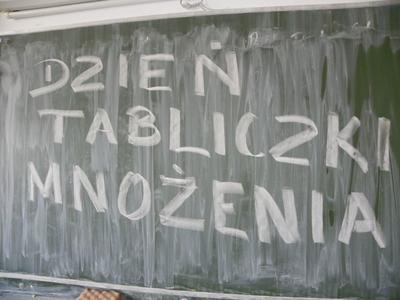 DZIEŃ
TABLICZKI
MNOŻENIA